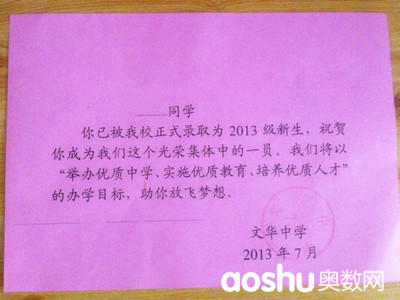 同学
你已被我校正式录取为 2013 级新生，祝贺
你成为我们这个光荣集体中的一员。我们将以
“举办优质中学、实施优质教育、培养优质人才”
的办学目标，助你放飞梦想。
文华中学
2013 年 7 月
aoshu奥数网